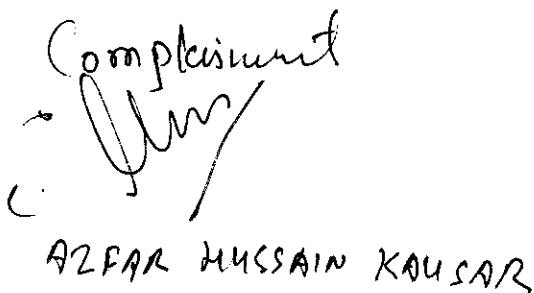 Complainant
AZFAR HUSSAIN KAUSAR